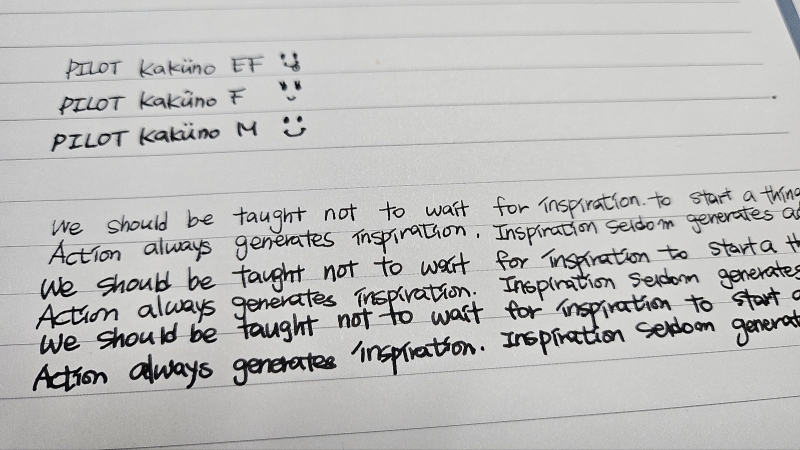 PILOT Kaküno EF
PILOT Kaküno F
PILOT Kaküno M
We should be taught not to wait for inspiration to start a thing
Action always generates inspiration. Inspiration seldom generates
We should be taught not to wait for inspiration to start a
Action always generates inspiration. Inspiration seldom generates
We should be taught not to wait for inspiration to start
Action always generates inspiration. Inspiration seldom